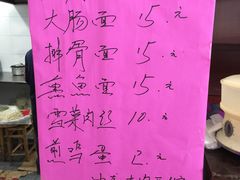 大肠面 15.元
排骨面 15.元
熏鱼面 15.元
雪菜肉丝 10.元
煎鸡蛋 2.元